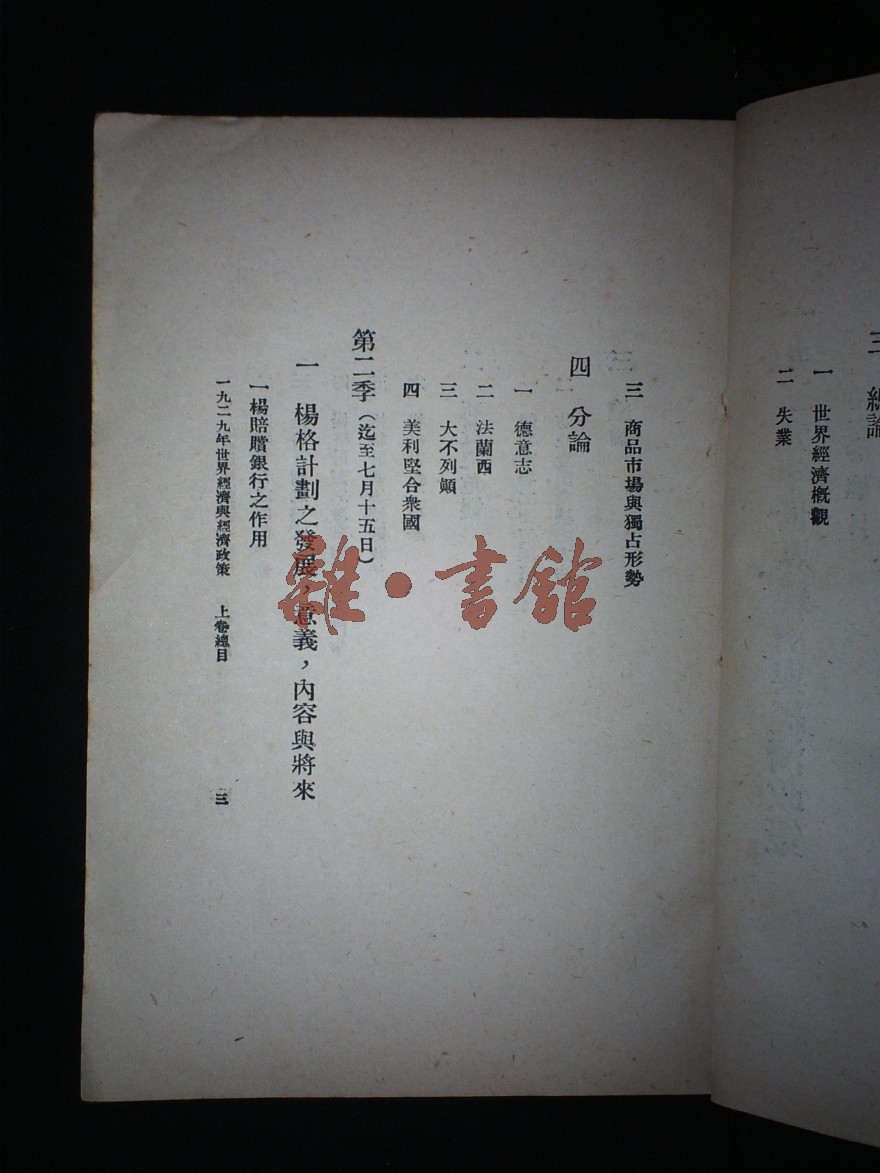 三　總論
一　世界經濟槪觀
二　失業
三　商品市場與獨占形勢
四　分論
一　德意志
二　法蘭西
三　大不列顚
四　美利堅合衆國
第二季（迄至七月十五日）
一　楊格計劃之發展，意義，內容與將來
一　楊賠償銀行之作用
一九二九年世界經濟與經濟政策　上卷總目
三
雜·書館